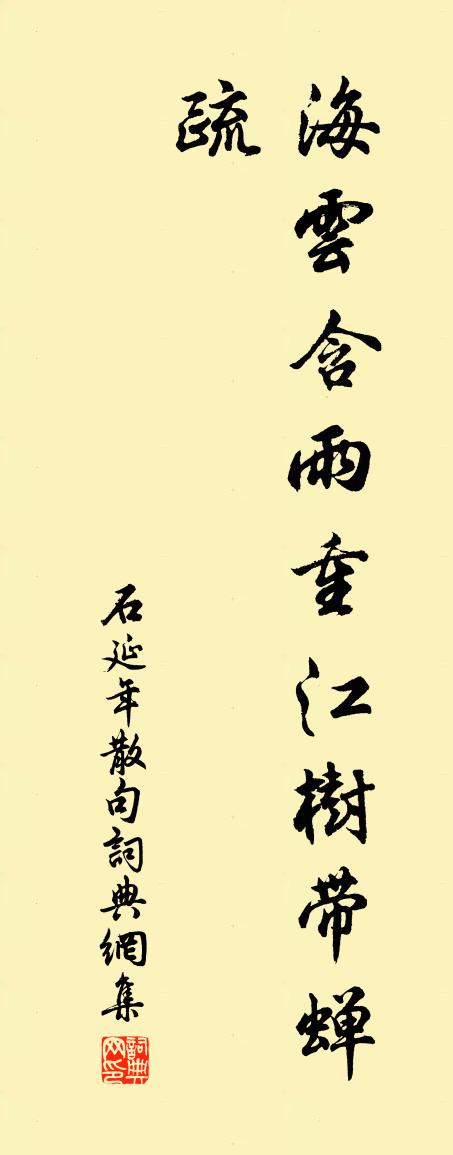 海雲含雨重江樹帶蝉
疏
石延年散句詞典網集
詞典网印